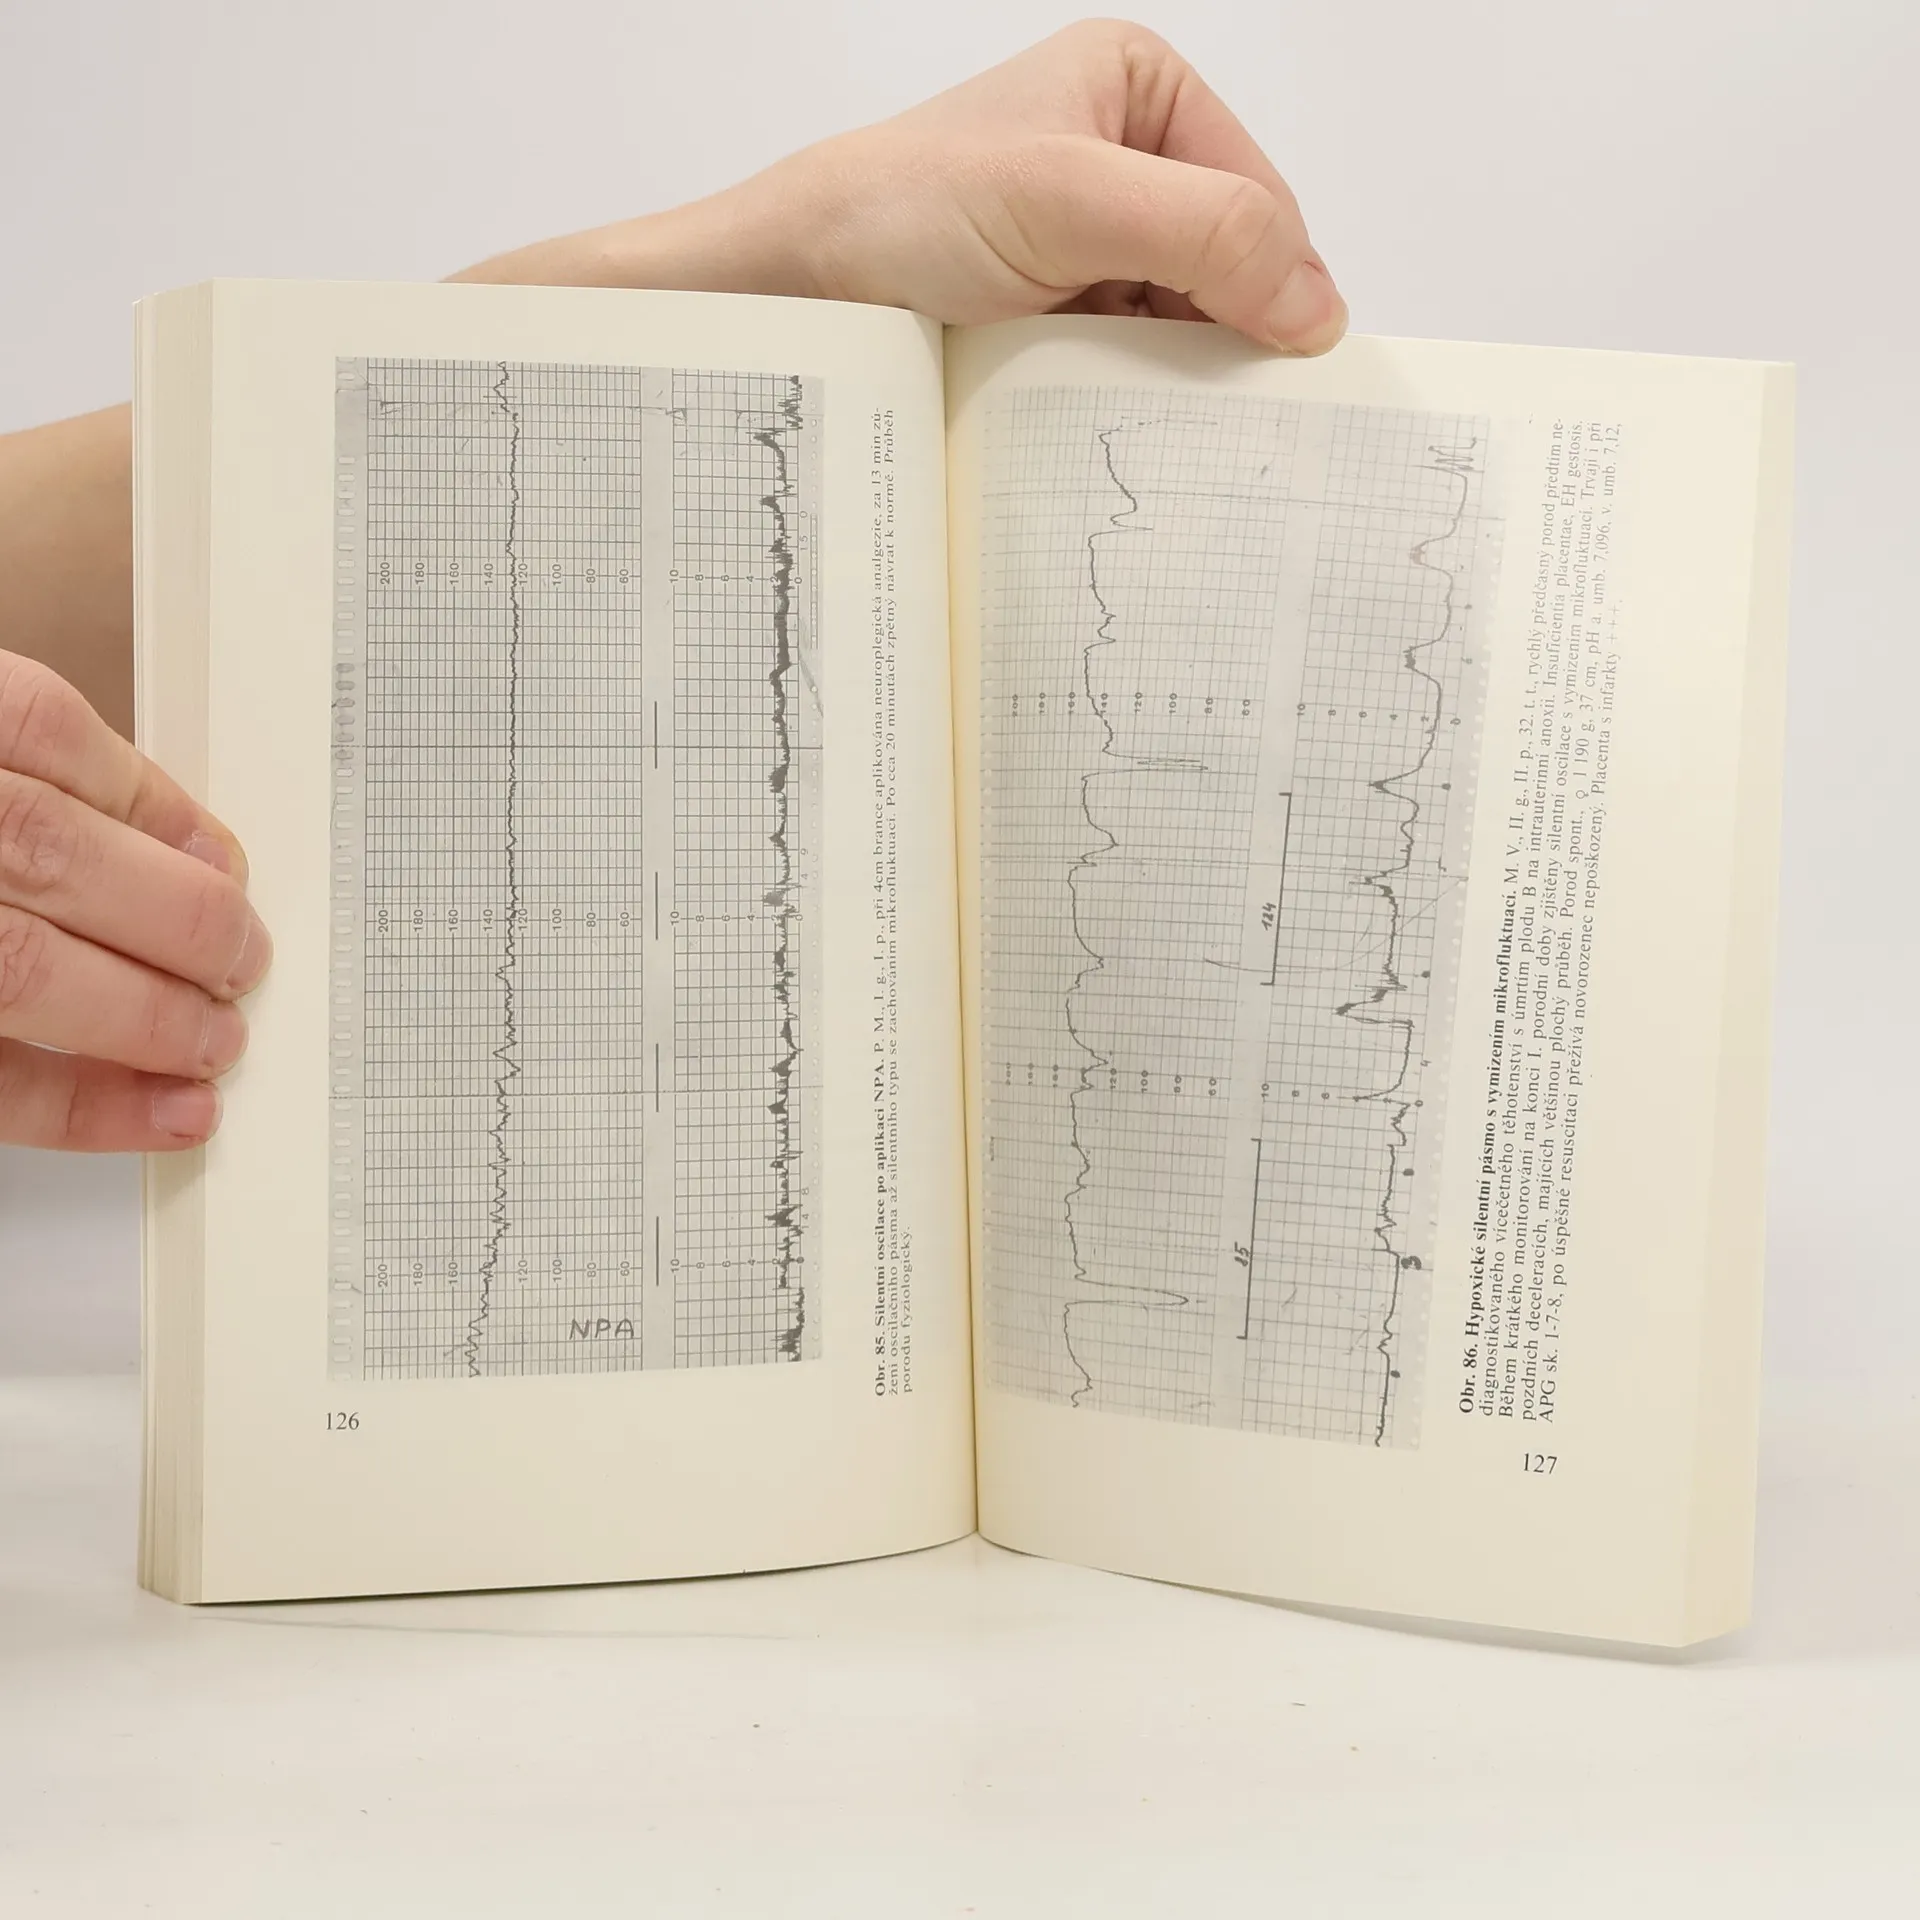 200 180 160 140 120 100 80 60 10 8 6 4 2 0
200 180 160 140 120 100 80 60 10 8 6 4 2 0
200 180 160 120 100 80 60 10 8 6 4 2 0
NPA
Obr. 85. Silentní oscilace po aplikaci NPA. P. M., I. g., I. p., při 4cm brance aplikována neuroplegická analgezie, za 13 min zú-
žení oscilačního pásma až silentního typu se zachováním mikrofluktuací. Po cca 20 minutách zpětný návrat k normě. Průběh
porodu fyziologický.
126
200 180 160 140 120 100 80 60 10 8 6 4 2 0
120 100 80 60 10 8 6 2 0
124
85
3
Obr. 86. Hypoxické silentní pásmo s vymizením mikrofluktuací. M. V., II. g., II. p., 32. t. t., rychlý předčasný porod předtím ne-
diagnostikovaného vícečetného těhotenství s úmrtím plodu B na intrauterinní anoxii. Insuficientia placentae, EH gestosis.
Během krátkého monitorování na konci I. porodní doby zjištěny silentní oscilace s vymizením mikrofluktuací. Trvají i při
pozdních deceleracích, majících většinou plochý průběh. Porod spont., ♀ 1 190 g, 37 cm, pH a. umb. 7,096, v. umb. 7,12,
APG sk. 1-7-8, po úspěšné resuscitaci přežívá novorozenec nepoškozený. Placenta s infarkty +++.
127